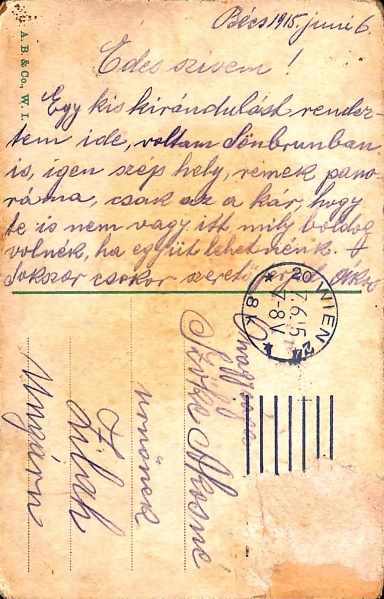 Bécs 1915. juni 6.
Édes szivem!
Egy kis kirándulást rendez-
tem ide, voltam Sönbrunban
is, igen szép hely, remek pano-
ráma, csak az a kár, hogy
te is nem vagy itt mily boldog
volnék, ha együtt lehetnénk.
Sokszor csokor szerető Ákos
A. B. & Co., W. I.
WIEN
7.6.15
8k
Nagysága
Szőke Ákosné
urnőnek
Zilah
Ungarn